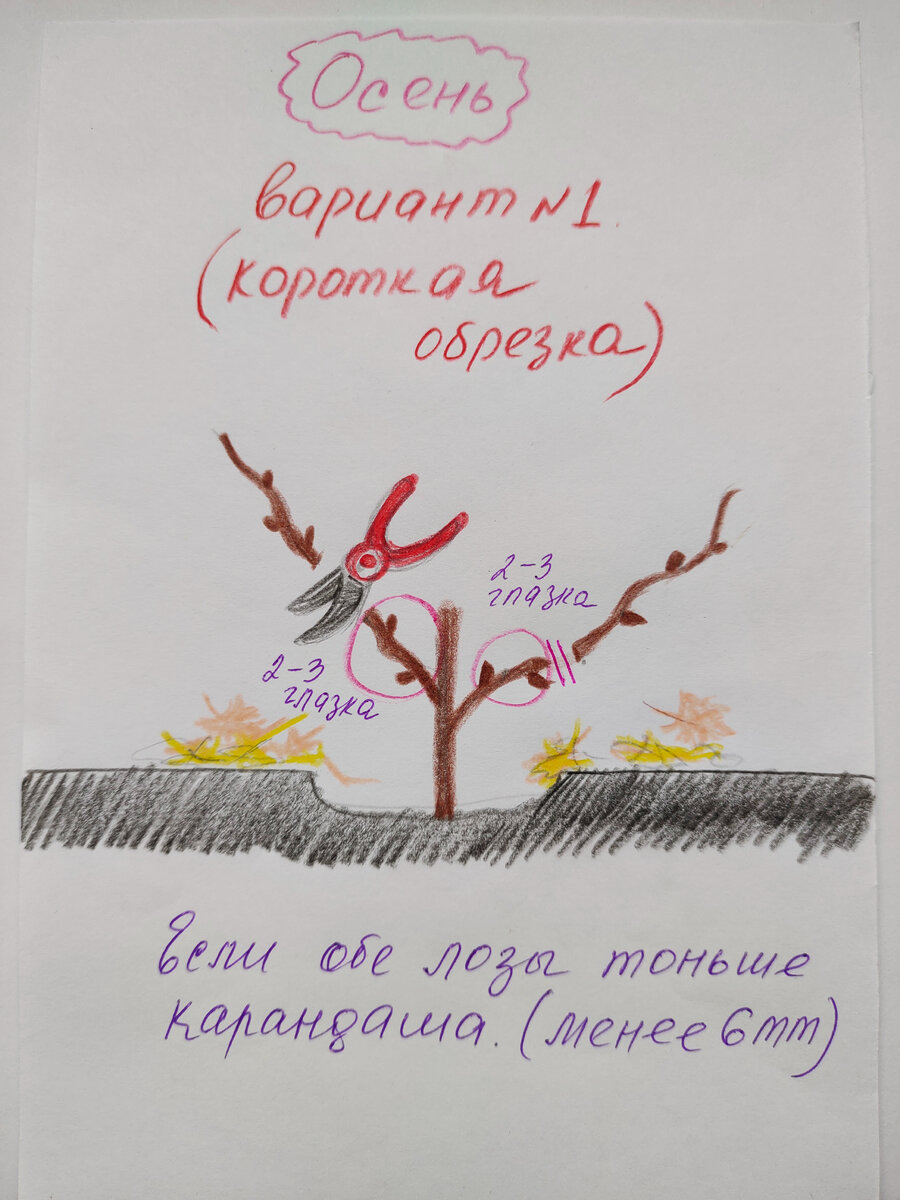 Осень
вариант №1.
(короткая
обрезка)
2-3
глазка
2-3
глазка
Если обе лозы тоньше
карандаша. (менее 6мм)